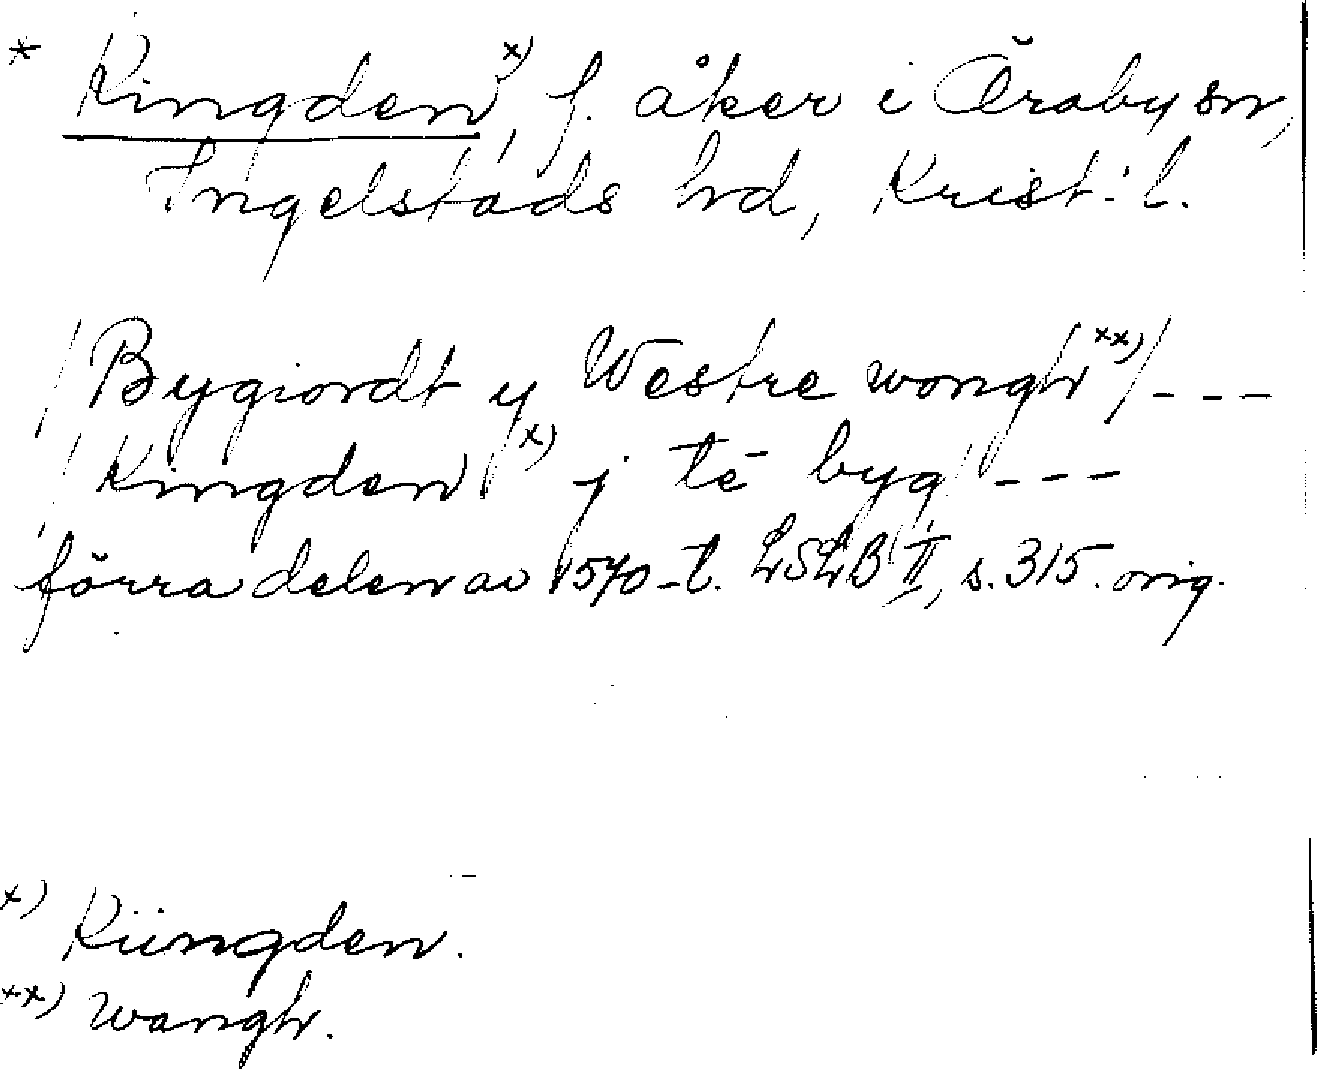 * Kingden x), f. åker i Öraby sn,
Ingelstads hd, Krist:l.
/Bygiordt y Westre wongh xx)/ - - -
/Kingden x) j te byg/ - - -
förra delen av 1570-t. LSLB II, s. 315. orig.
x) Kiingden.
xx) wangh.